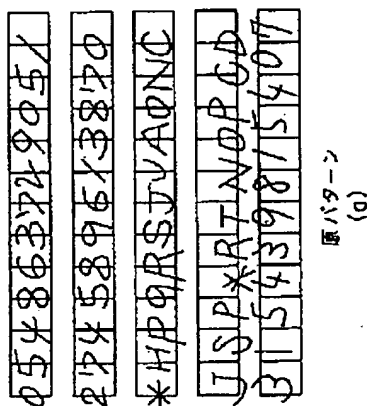 0548637249051
274589613870
*HPQRSJVAQNC
JSP*RTNOPCD
315439815407
原パターン
(a)